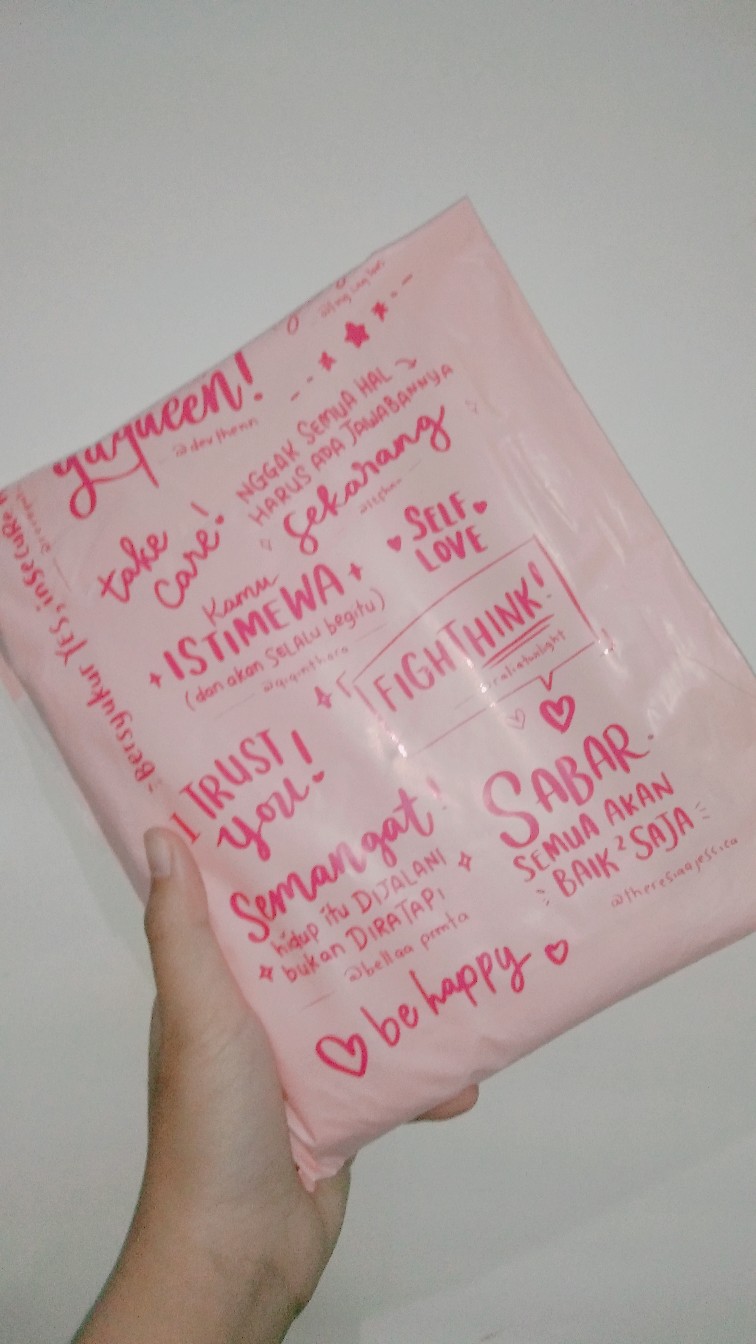 yuqueen!
@devjhenn
take
care!
NGGAK SEMUA HAL
HARUS ADA JAWABANNYA
sekarang
SELF
LOVE
Kamu
ISTIMEWA
(dan akan SELALU begitu)
FIGHTHINK!
Bersyukur Yes, insecure
I TRUST
you!
Semangat!
hidup itu DIJALANI
bukan DIRATAPI
@bellaa
SABAR.
SEMUA AKAN
BAIK² SAJA
@theresiaajessica
be happy